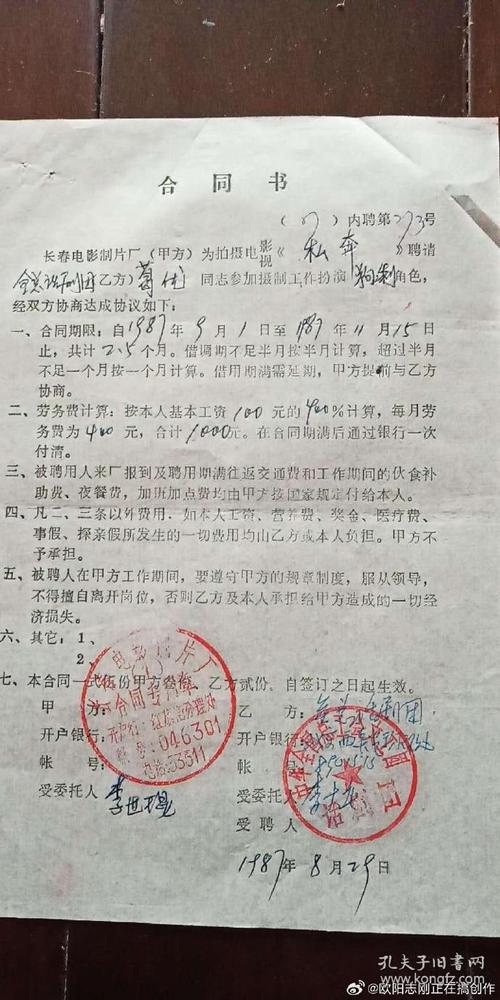 合同书
（87）内聘第273号
长春电影制片厂（甲方）为拍摄电影视《私奔》聘请
全总话剧团乙方）葛优 同志参加摄制工作扮演 角色，
经双方协商达成协议如下：
一、合同期限：自1987年9月1日至1987年11月15日
止，共计2.5个月。借调期不足半月按半月计算，超过半月
不足一个月按一个月计算。借用期满需延期，甲方提前与乙方
协商。
二、劳务费计算：按本人基本工资100元的400％计算，每月劳
务费为400元，合计1000元。在合同期满后通过银行一次
付清。
三、被聘用人来厂报到及聘用期满往返交通费和工作期间的伙食补
助费、夜餐费，加班加点费均由甲方按国家规定付给本人。
四、凡二、三条以外费用．如本人工资、营养费、奖金、医疗费、
事假、探亲假所发生的一切费用均由乙方或本人负担。甲方不
予承担。
五、被聘人在甲方工作期间，要遵守甲方的规章制度，服从领导，
不得擅自离开岗位，否则乙方及本人承担给甲方造成的一切经
济损失。
六、其它：1、
2、
七、本合同一式伍份甲方叁份，乙方贰份。自签订之日起生效。
甲方： 乙方：全总话剧团
开户银行： 开户银行：
帐号： 帐号：
受委托人 受委托人
受聘人
1987年8月29日
电影制片厂
合同专用章
046301
电话53311
话剧团
孔夫子旧书网
@欧阳志刚正在搞创作